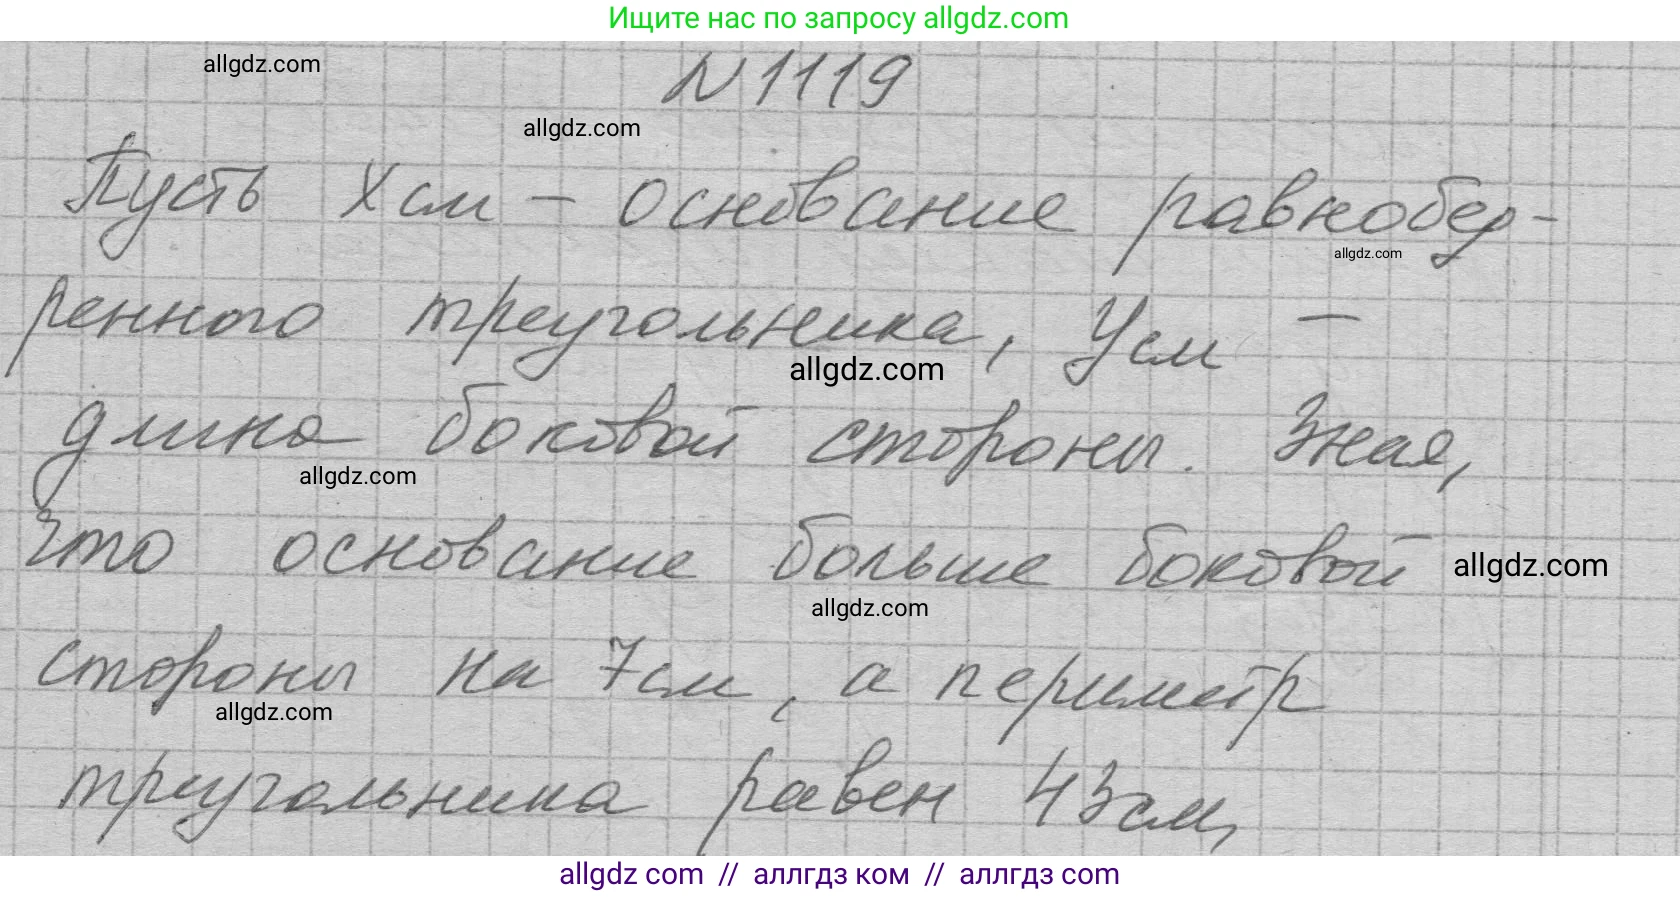 Ищите нас по запросу allgdz.com
allgdz.com
N 1119
allgdz.com
Пусть x см – основание равнобед-
allgdz.com
ренного треугольника, y см –
allgdz.com
длина боковой стороны. Зная,
allgdz.com
что основание больше боковой
allgdz.com
allgdz.com
стороны на 7 см, а периметр
allgdz.com
треугольника равен 43 см,
allgdz com // аллгдз ком // аллгдз com